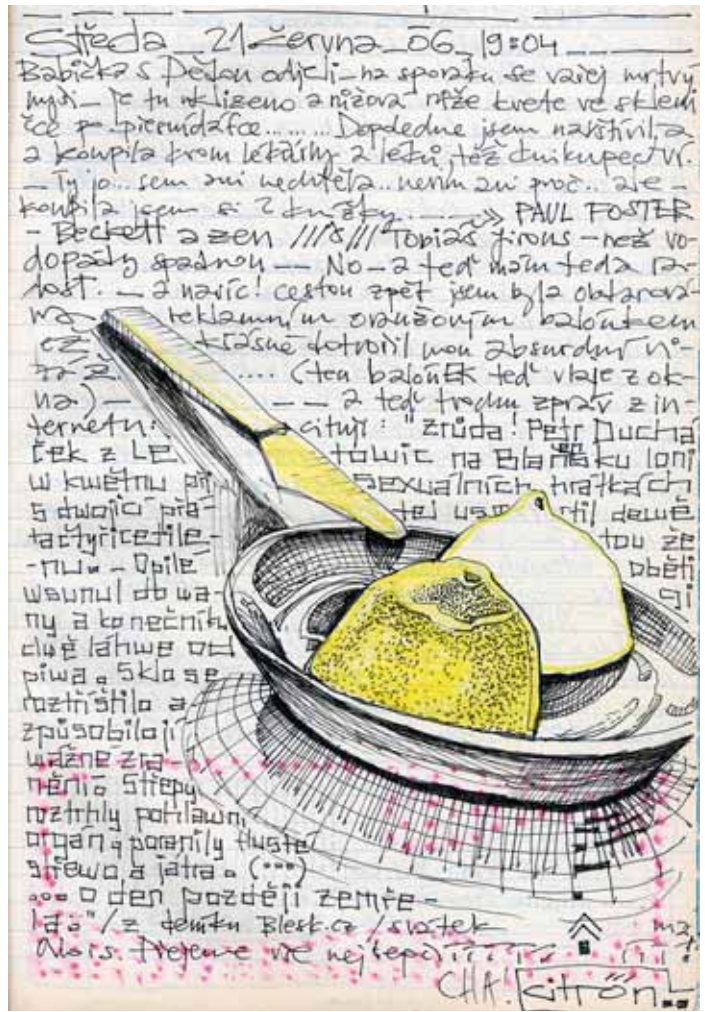 Středa_21 června_06_19:04
Babička s Dědou odjeli – na sporáku se vařej mrtvý
myši – je tu uklizeno a růžová růže kvete ve skleni
čce po ......... Dopoledne jsem navštívila
a koupila krom lékárny a léků, též knihkupectví.
– Ty jo... sem ani nechtěla.. nevim ani proč.. ale –
koupila jsem si 2 knížky ........→ PAUL FOSTER
– Beckett a zen ///&/// Tobiáš Jirous – než vo-
dopády spadnou –– No – a teď mám teda ra-
dost. – a navíc! cestou zpět jsem byla obdarová-
na reklamním oranžovým balónkem
krásně dotvořil mou absurdní
.... (ten balónEK teď vlaje z ok-
na) –– – –– a teď trochu zpráv z in-
ternetu: cituji: "zrůda! Petr Pucha
ček z Le towic na Blaňsku loni
w kwětnu při sexuálních hrátkách
s dwojicí přá- tel usmrtil dewě
tačtyřicetile- tou že
-nu. – Opilé oběti
wsunul do wa- gi
ny a konečníku
dwě láhwe od
piwa. Sklo se
roztříštilo a
způsobilo jí
wážné zra
nění. Střepy
roztrhly pohlawní
orgán, poranily tlusté
střewo a játra. (°°°)
°°° o den později zemře-
la." / z deníku Blesk.cz / svátek má
Alois. Přejeme vše nejlepčí
CHA! citrón..